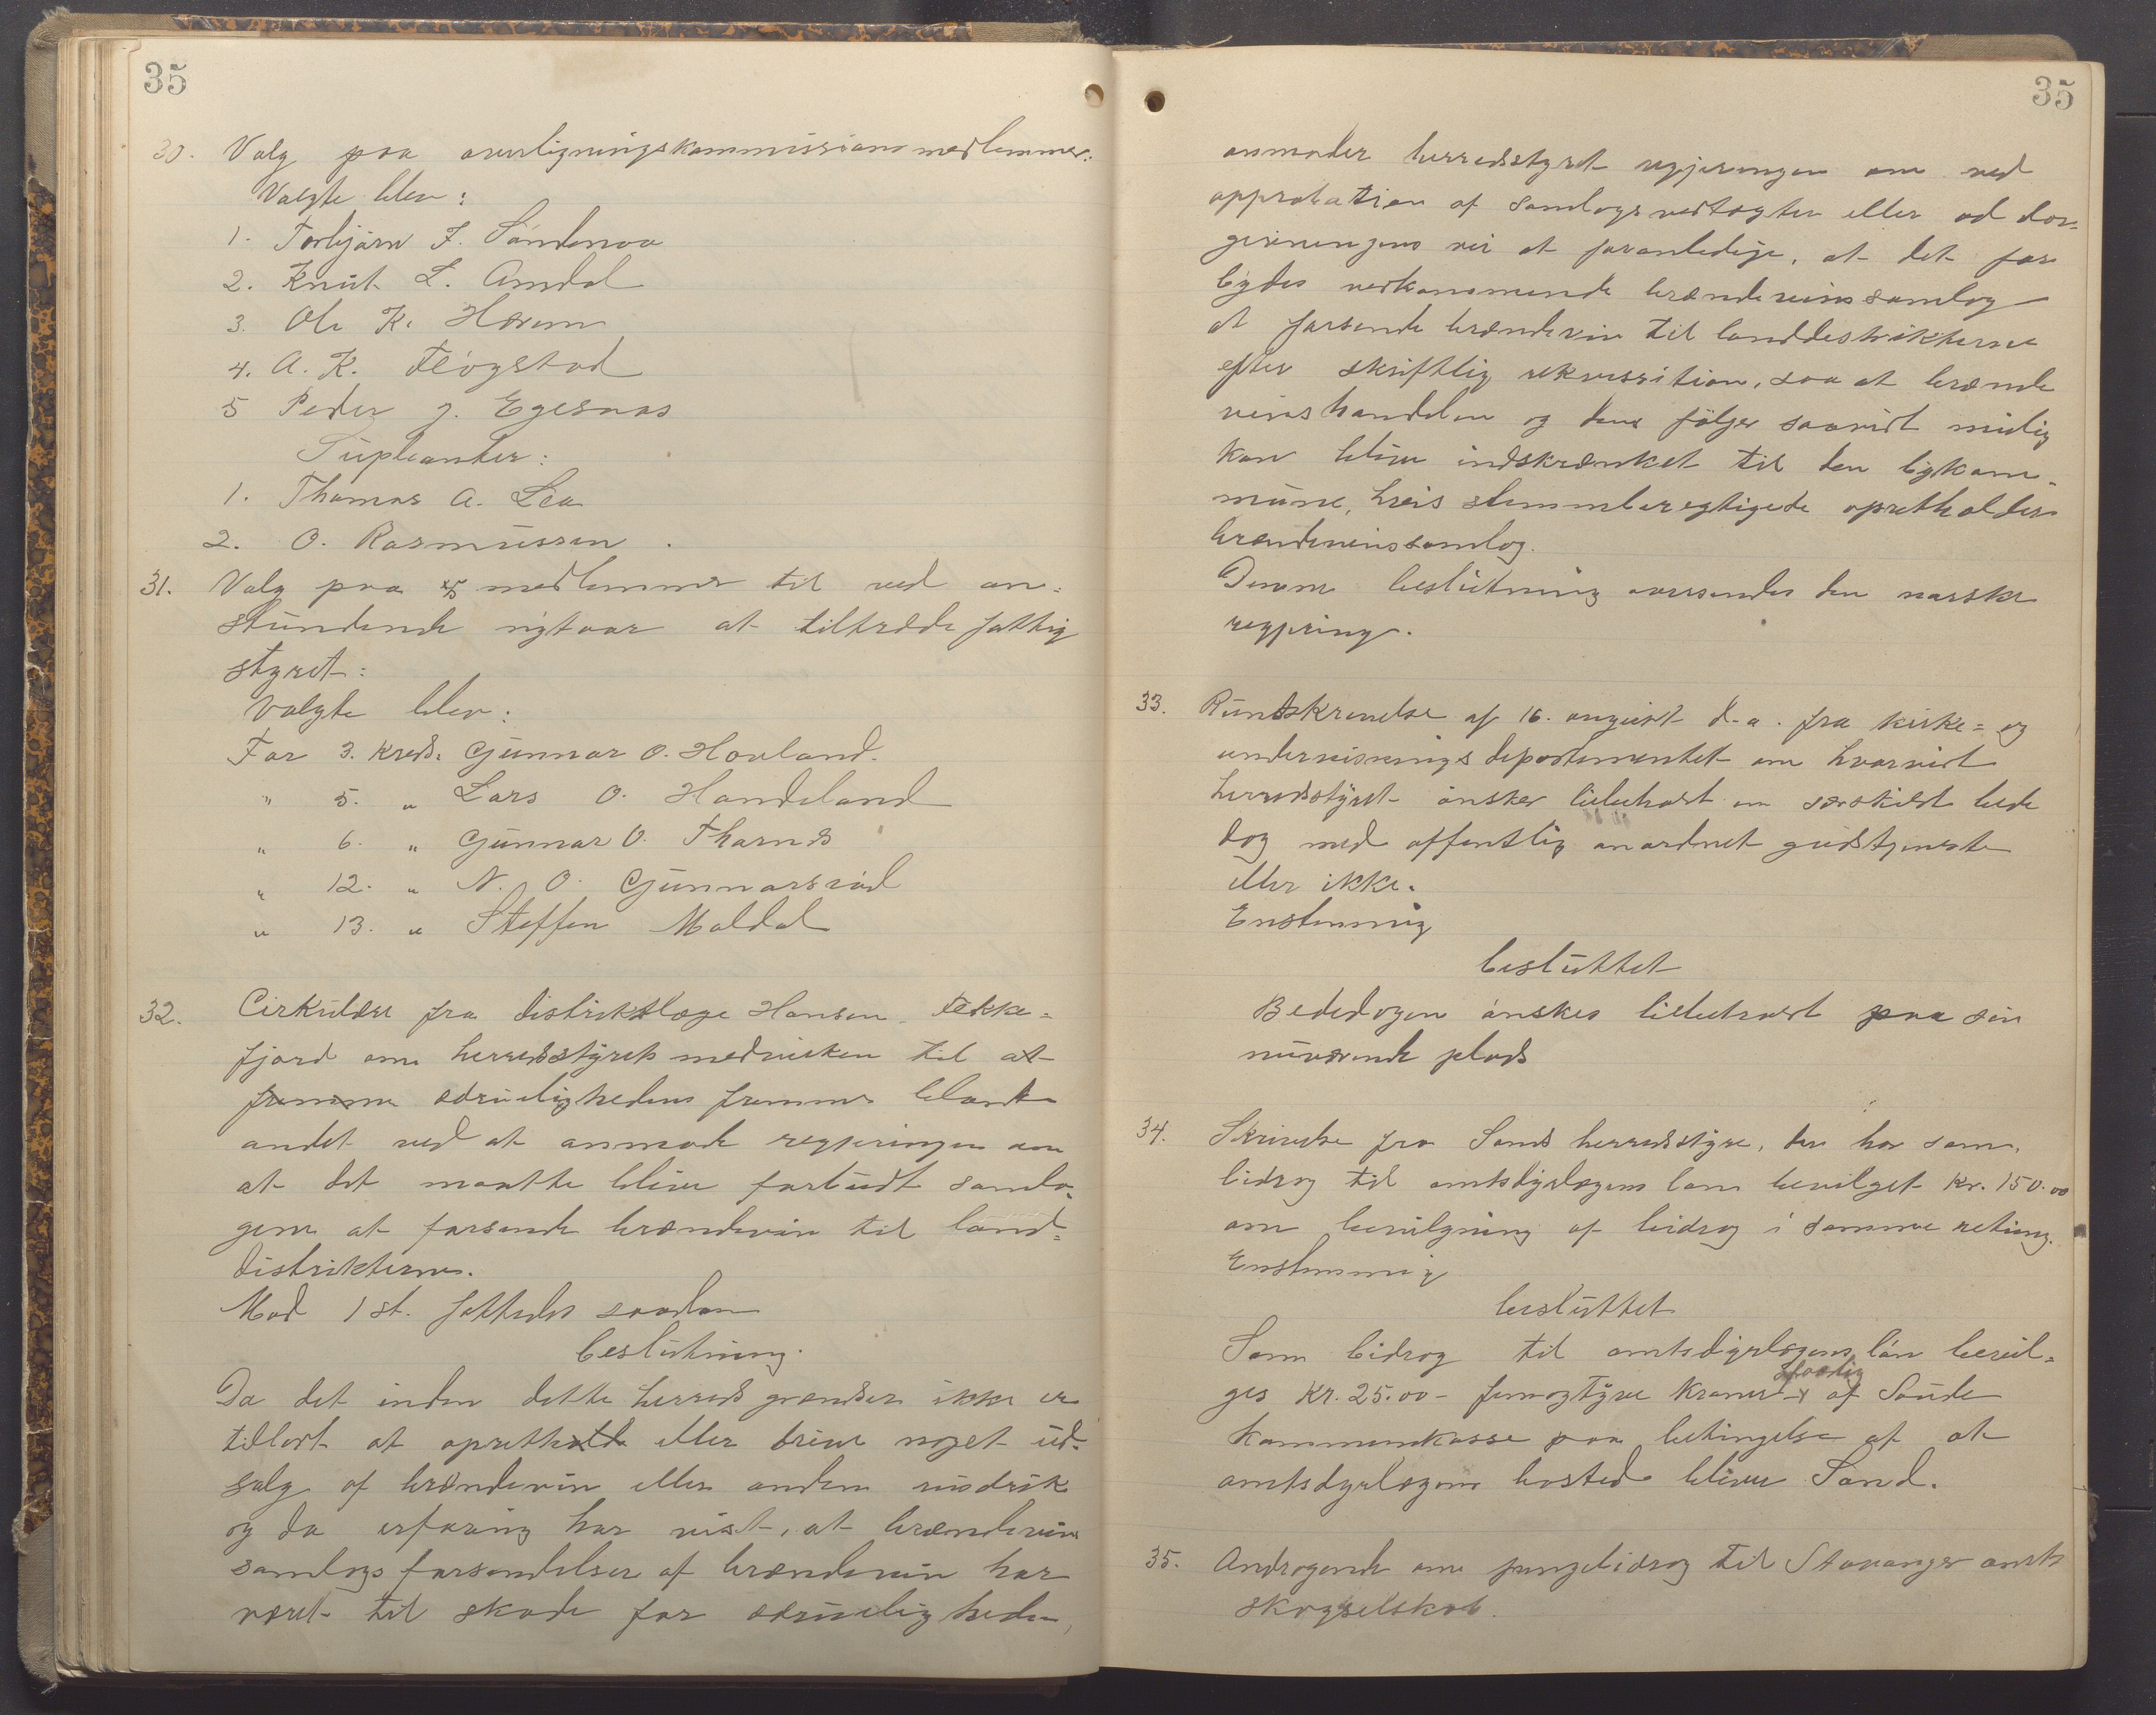 35
30. Valg paa overligningskommissionsmedlemmer:
Valgte blev:
1. Torbjørn T. Søndenaa
2. Knut L. Amdal
3. Ole K. Herum
4. A. K. Fløgstad
5 Peder J. Egesnæs
Supleanter:
1. Thomas A. Lea
2. O. Rasmussen.
31. Valg paa 5 medlemmer til ved an=
stundende nytaar at tiltræde fattig
styret:
Valgte blev:
For 3. kreds. Gunnar O. Hovland.
" 5. " Lars O. Handeland
" 6. " Gunnar O.
" 12. " N. O. Gunnarsrød
" 13. " Steffen Moldal
32. Cirkulære fra distriktslæge Hansen, Fekke=
fjord om herredsstyrets medvirken til at
fremme ædruelighedens fremme blandt
andet ved at anmode regjeringen om
at det maatte blive forbudt samla=
gene at forsende brændevin til land=
distrikterne.
Mod 1 st. fattedes saadan
beslutning.
Da det inden dette herreds grændser ikke er
tilladt at opretholde eller drive noget ud=
salg af brændevin eller anden rusdrik
og da erfaring har vist, at brændevins
samlags forsendelser af brændevin har
været til skade for ædrueligheden,
35
anmoder herredsstyret regjeringen om ved
approbation af samlagsvedtægter eller ad lov=
givningens vei at foranledige, at det for
bydes vedkommende brændevinssamlag
at forsende brændevin til landdistrikterne
efter skriftlig rekvisition, saa at brænde
vinshandelen og dens følger saavidt mulig
kan blive indskrænket til den bykom=
mune, hvis stemmeberegtigede opretholder
brændevinssamlag.
Denne beslutning oversendes den norske
regjering.
33. Rundskrivelse af 16. august d. a. fra kirke= og
undervisningsdepartementet om hvorvidt
herredsstyret ønsker bibeholdt en særskilt bede
dag med offentlig anordnet gudstjeneste
eller ikke.
Enstemmig
besluttet
Bededagen ønskes bibeholdt paa sin
nuværende plads
34. Skrivelse fra Sands herredsstyre, der har som
bidrag til amtsdyrlægens løn bevilget kr. 150.00
om bevilgning af bidrag i samme retning.
Enstemmig
besluttet
Som bidrag til amtsdyrlægens løn bevil=
ges Kr. 25.00 - femogtyve kroner - aarlig af Saude
kommunekasse paa betingelse af at
amtsdyrlægens bosted bliver Sand.
35. Andragende om pengebidrag til Stavanger amts
skogselskab.